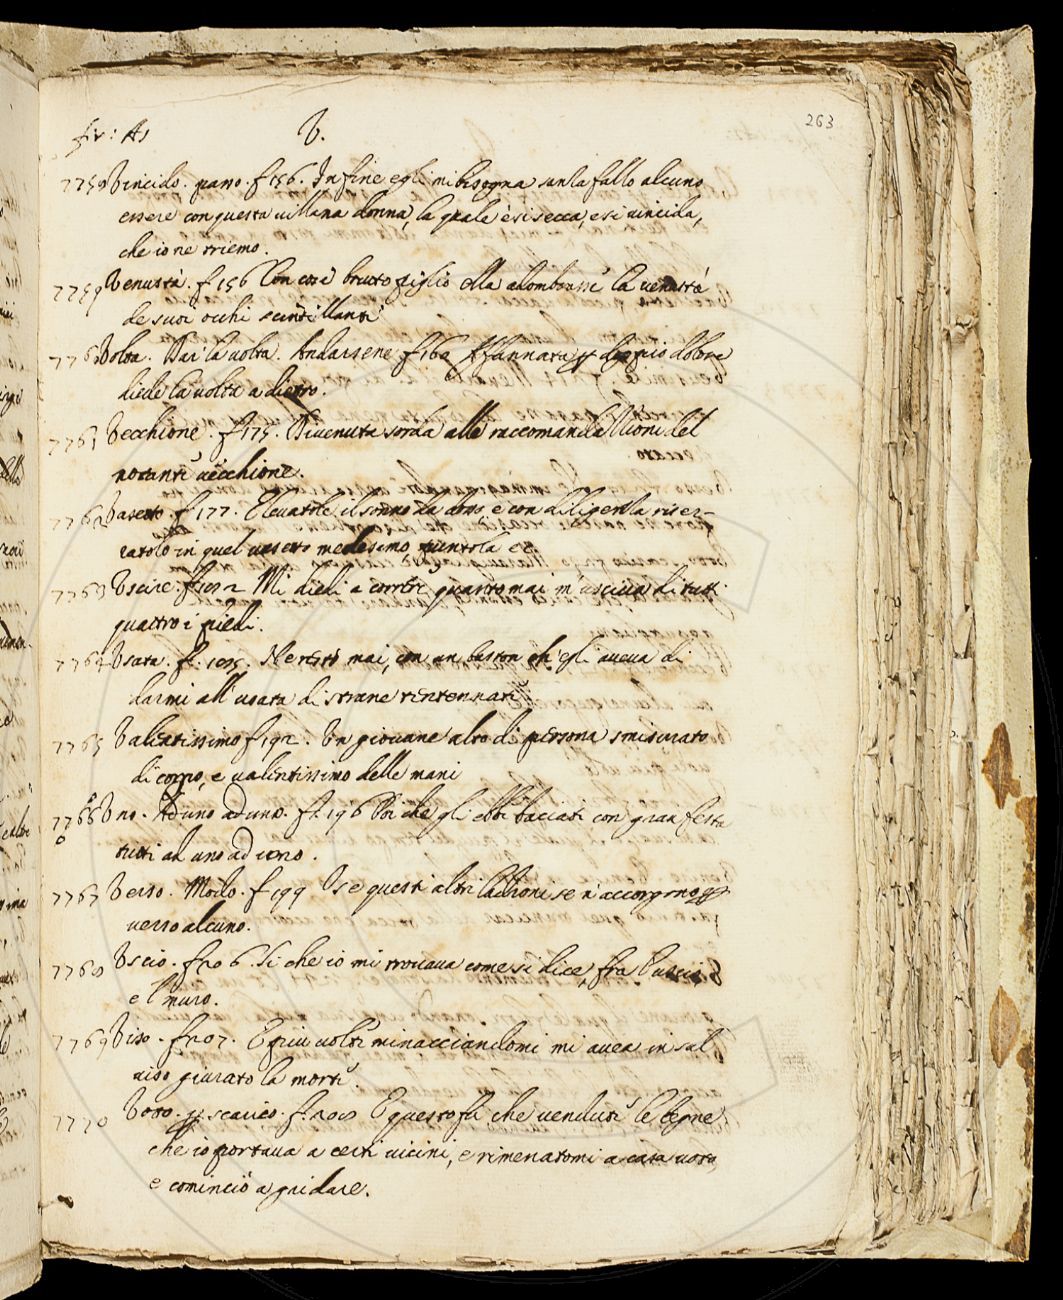 fir: As V. 263
7758 Vincido. panno. f 156. In fine egli mi bisogna sanza fallo alcuno
essere con questa uillana donna, la quale è si secca, e si uincida,
che io ne triemo.
7759 Venustà. f 156 Con così brutto piglio ella adombasse la uenustà
de suoi occhi scintillanti
7760 Volta. Dar la uolta. Andarsene f 160 Affannata per doppio dolore
diede la uolta a dietro.
7761 Vecchione. f 175. Diuenuta sorda alle raccomandazioni del
notante uecchione.
7762 Vasetto f 177. Leuatole il sonno da dosso e con diligenza riser-
ratolo in quel uasetto medesimo, puntola
7763 Vscire. f 182 Mi diedi a correre quanto mai m'usciua di tutti
quattro i piedi.
7764 Vsata. f. 185. Ne restò mai, con un baston ch'egli aueua di
darmi all'usata di strane tentennate
7765 Valentissimo f 192. Vn giouane alto di persona smisurato
di corpo, e ualentissimo delle mani
7766 Vno. Ad uno ad uno. f. 196 Poi che gli ebbe baciati con gran festa
tutti ad uno ad uno.
7767 Verso. Modo. f 199 Vse questi altri ladroni se n'accorgono per
uerso alcuno.
7768 Vscio. f 206. Si che io mi trouaua come si dice, fra l'uscio
e l muro.
7769 Viso. f 207. E piu uolte minacciandomi mi auea in sul
uiso giurato la morte.
7770 Voto. per scarico. f 208 E questo fu che uendute le legne
che io portaua a certi uicini, e rimenatomi a casa uoto
e cominciò a gridare.